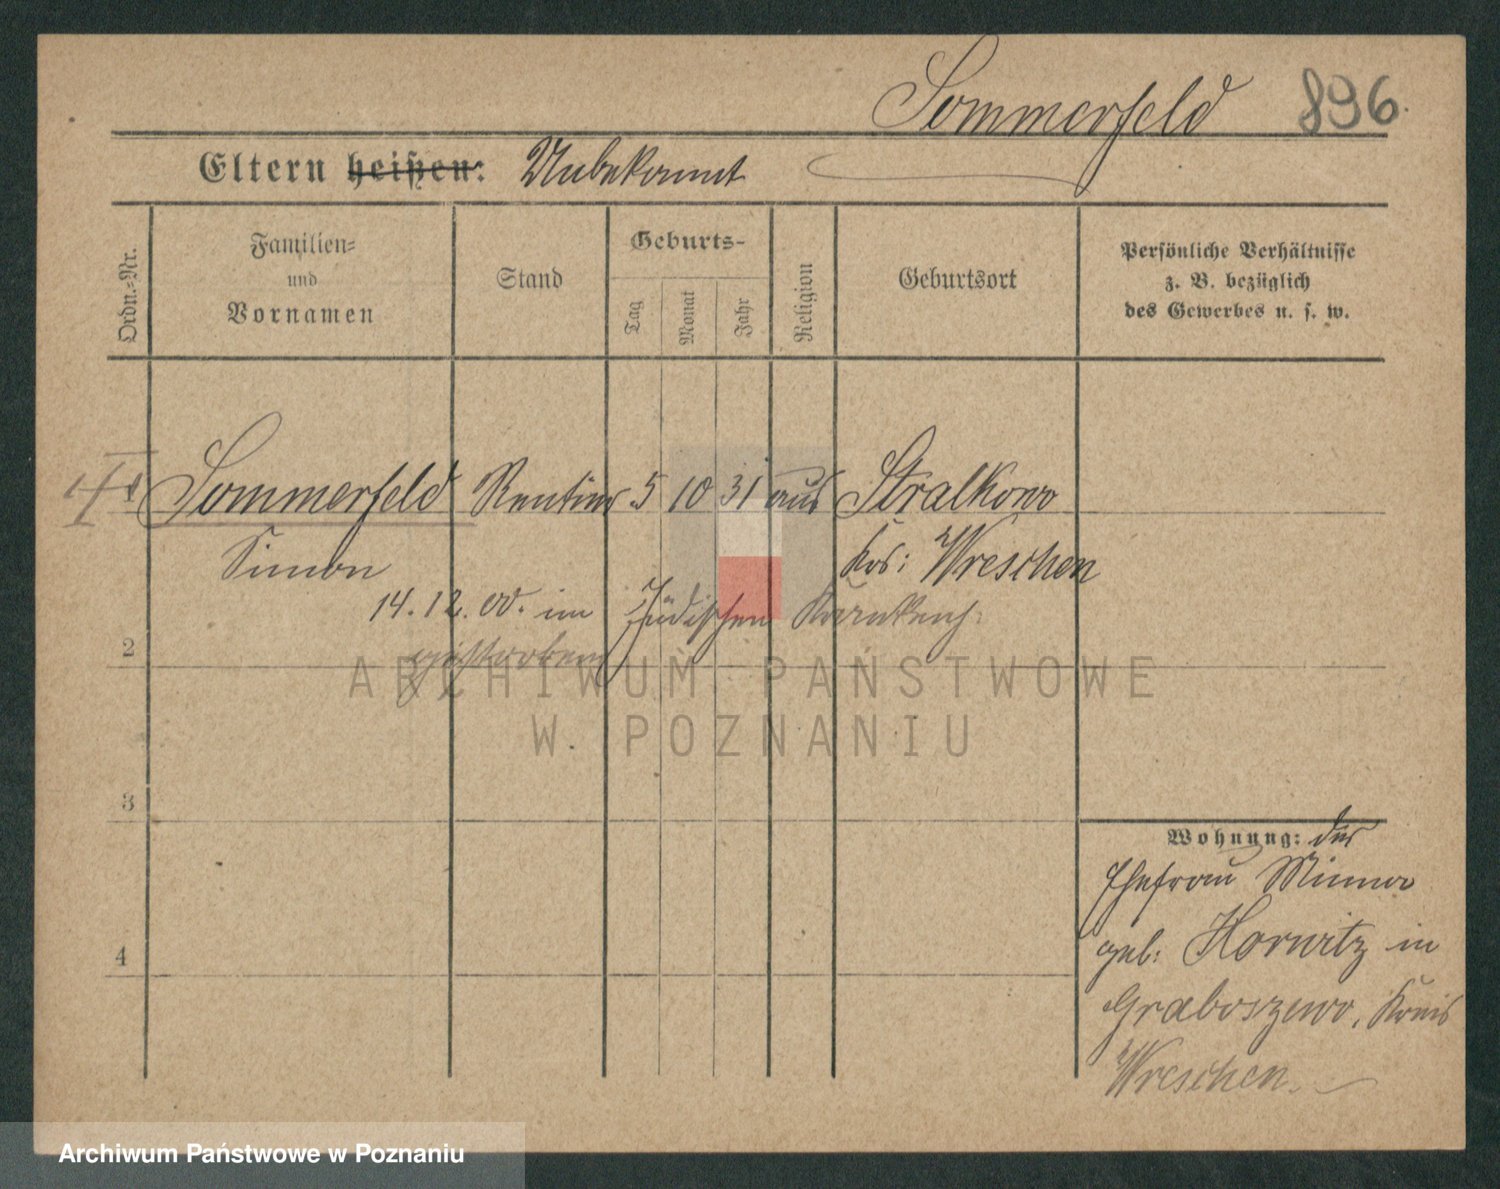 Sommerfeld 896.
Eltern heißen: Unbekannt
Ordn.-Nr.
Familien-
und
Vornamen
Stand
Geburts-
Tag
Monat
Jahr
Religion
Geburtsort
Persönliche Verhältnisse
z. B. bezüglich
des Gewerbes u. s. w.
1 Sommerfeld Rentier 5 10 31 aus Stralkowo
Simon Krs: Wreschen
14.12.00. im Jüdischen Krankenh.
gestorben
2
ARCHIWUM PAŃSTWOWE
W POZNANIU
3
4
Wohnung: der
Ehefrau Minna
geb: Horwitz in
Graboszewo, Kreis
Wreschen.
Archiwum Państwowe w Poznaniu